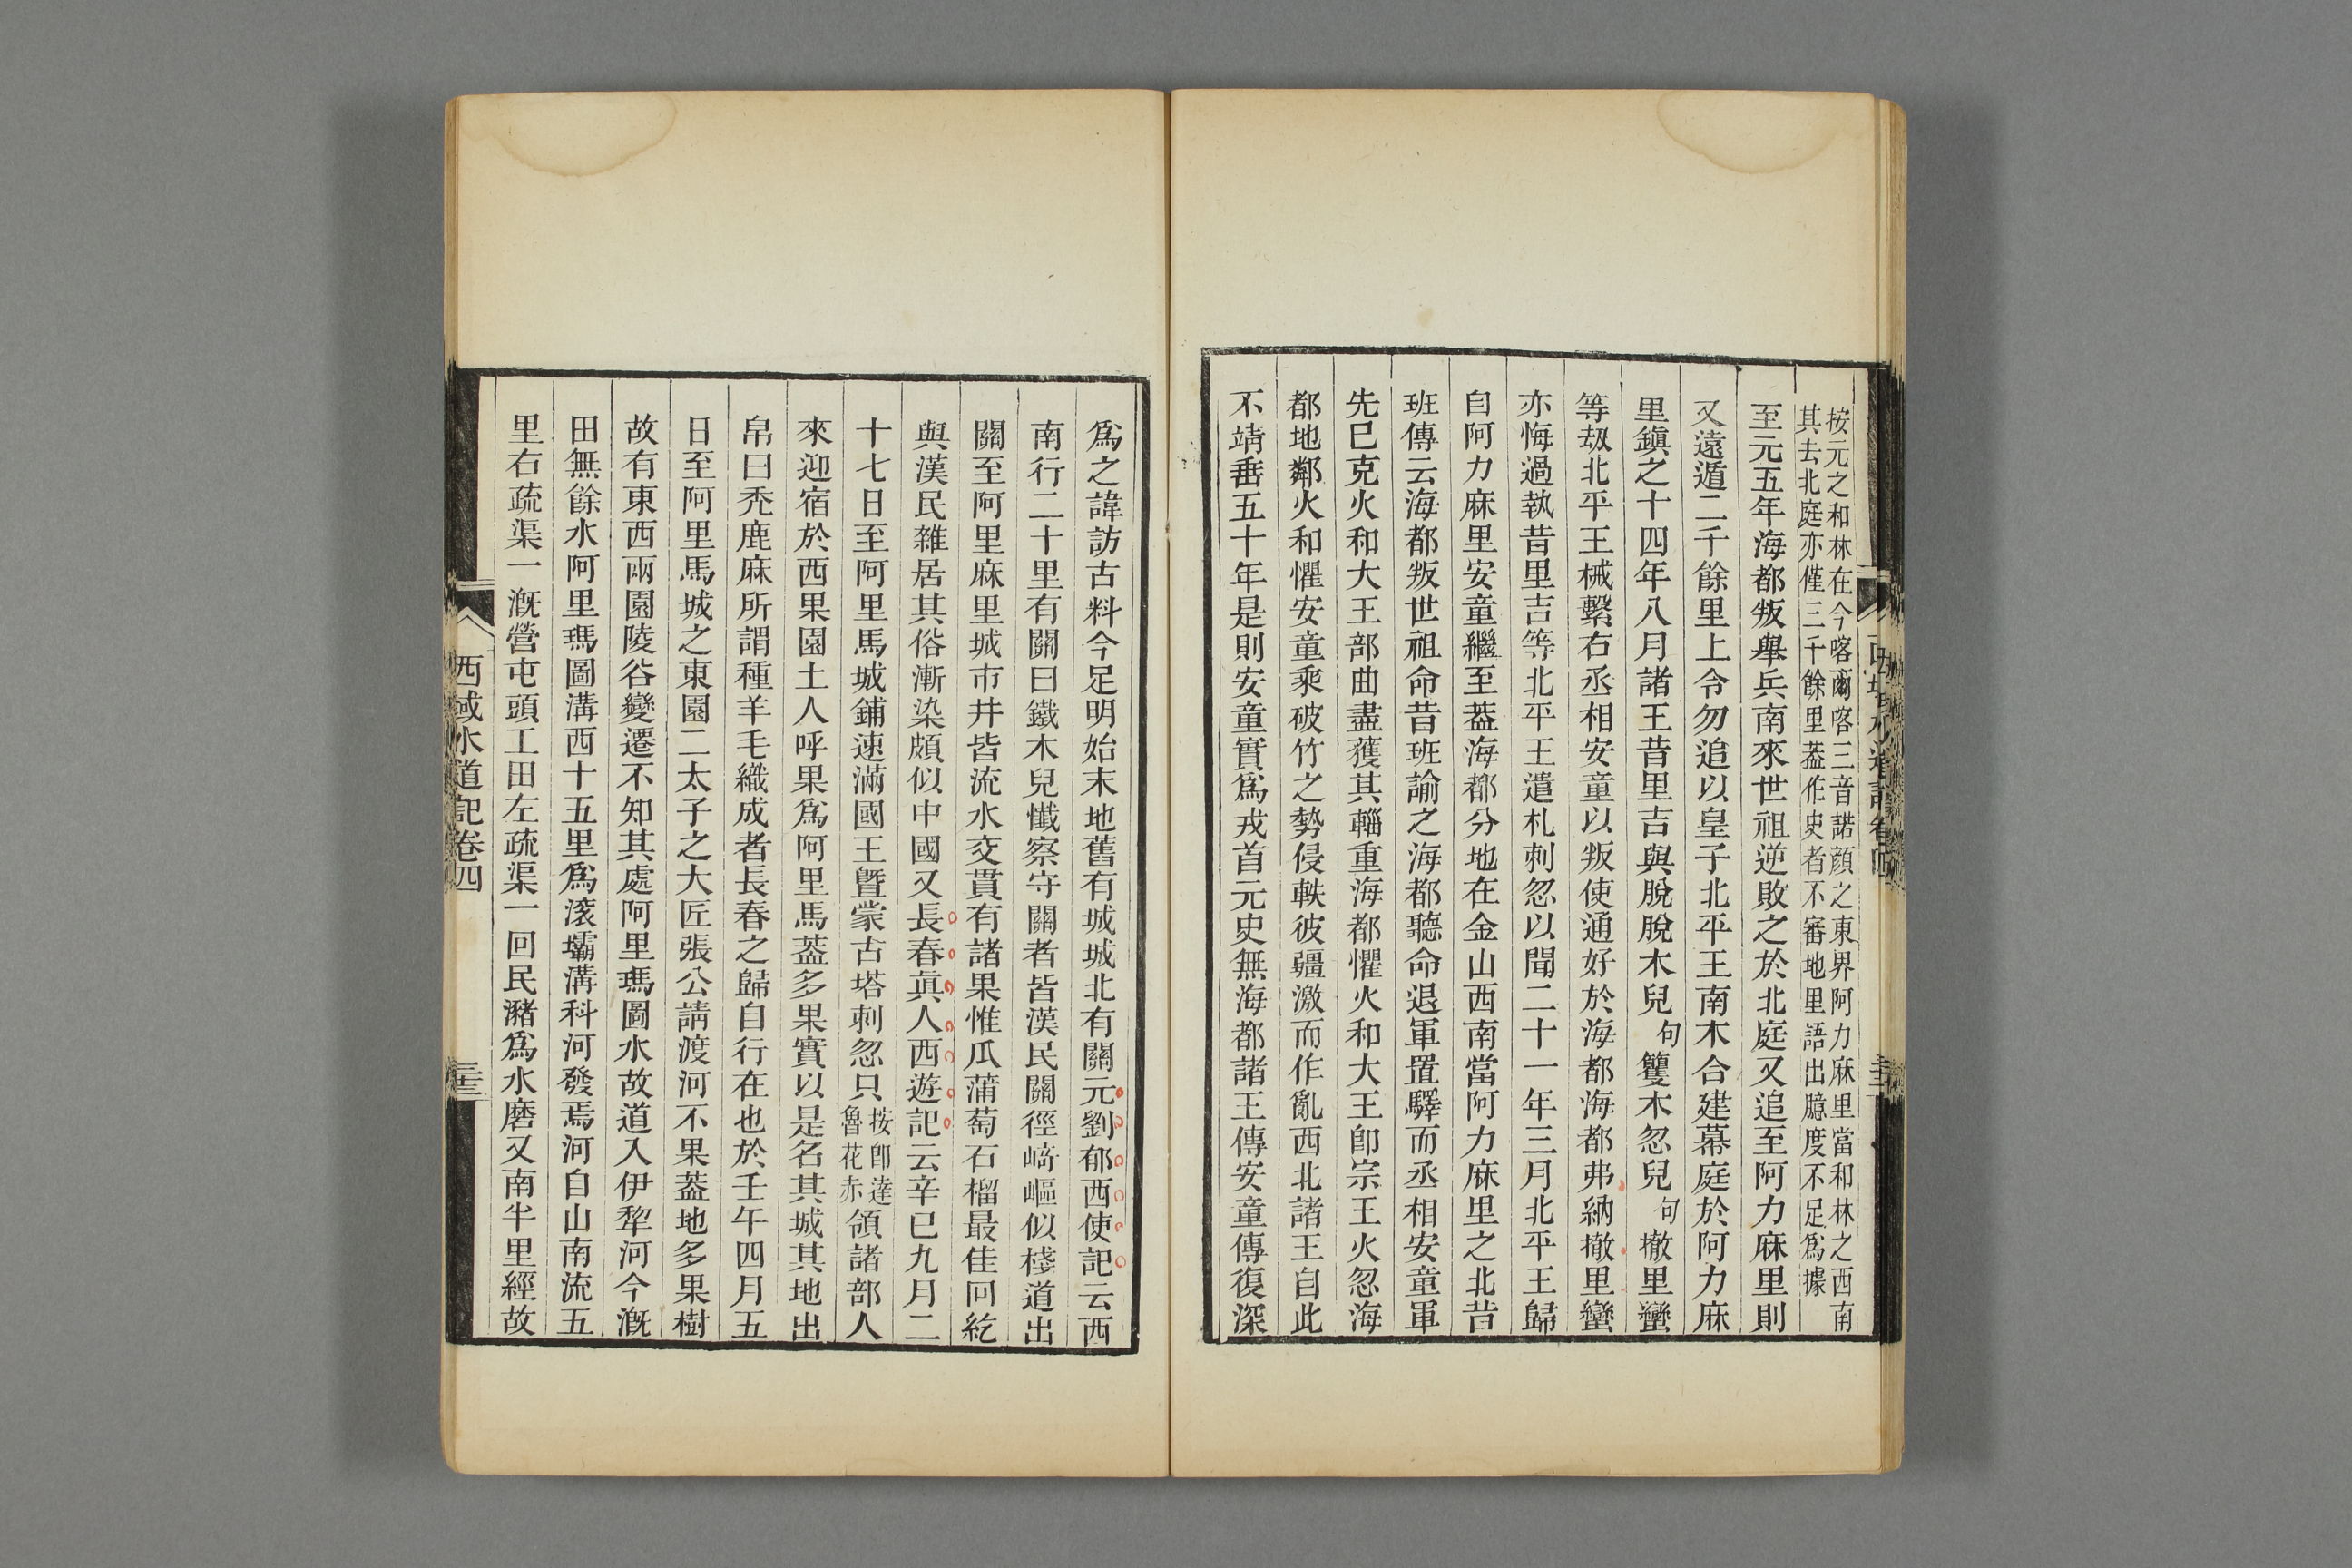 按元之和林在今喀爾喀三音諾顏之東界阿力麻里當和林之西南
其去北庭亦僅三千餘里葢作史者不審地里語出臆度不足爲據
至元五年海都叛舉兵南來世祖逆敗之於北庭又追至阿力麻里則
又遠遁二千餘里上令勿追以皇子北平王南木合建幕庭於阿力麻
里鎭之十四年八月諸王昔里吉與脫脫木兒句籰木忽兒句撤里蠻
等刼北平王械繫右丞相安童以叛使通好於海都海都弗納撤里蠻
亦悔過執昔里吉等北平王遣札剌忽以聞二十一年三月北平王歸
自阿力麻里安童繼至葢海都分地在金山西南當阿力麻里之北昔
班傳云海都叛世祖命昔班諭之海都聽命退軍置驛而丞相安童軍
先已克火和大王部曲盡獲其輜重海都懼火和大王卽宗王火忽海
都地鄰火和懼安童乘破竹之勢侵軼彼疆激而作亂西北諸王自此
不靖垂五十年是則安童實爲戎首元史無海都諸王傳安童傳復深
爲之諱訪古料今足明始末地舊有城城北有關元劉郁西使記云西
南行二十里有關曰鐵木兒懺察守關者皆漢民關徑﨑嶇似棧道出
關至阿里麻里城市井皆流水交貫有諸果惟瓜蒲萄石榴最佳回紇
與漢民雜居其俗漸染頗似中國又長春眞人西遊記云辛巳九月二
十七日至阿里馬城鋪速滿國王曁蒙古塔剌忽只按卽達魯花赤領諸部人
來迎宿於西果園土人呼果爲阿里馬葢多果實以是名其城其地出
帛曰禿鹿麻所謂種羊毛織成者長春之歸自行在也於壬午四月五
日至阿里馬城之東園二太子之大匠張公請渡河不果葢地多果樹
故有東西兩園陵谷變遷不知其處阿里瑪圖水故道入伊犂河今漑
田無餘水阿里瑪圖溝西十五里爲滚壩溝科河發焉河自山南流五
里右疏渠一漑營屯頭工田左疏渠一回民瀦爲水磨又南半里經故
西域水道記卷四